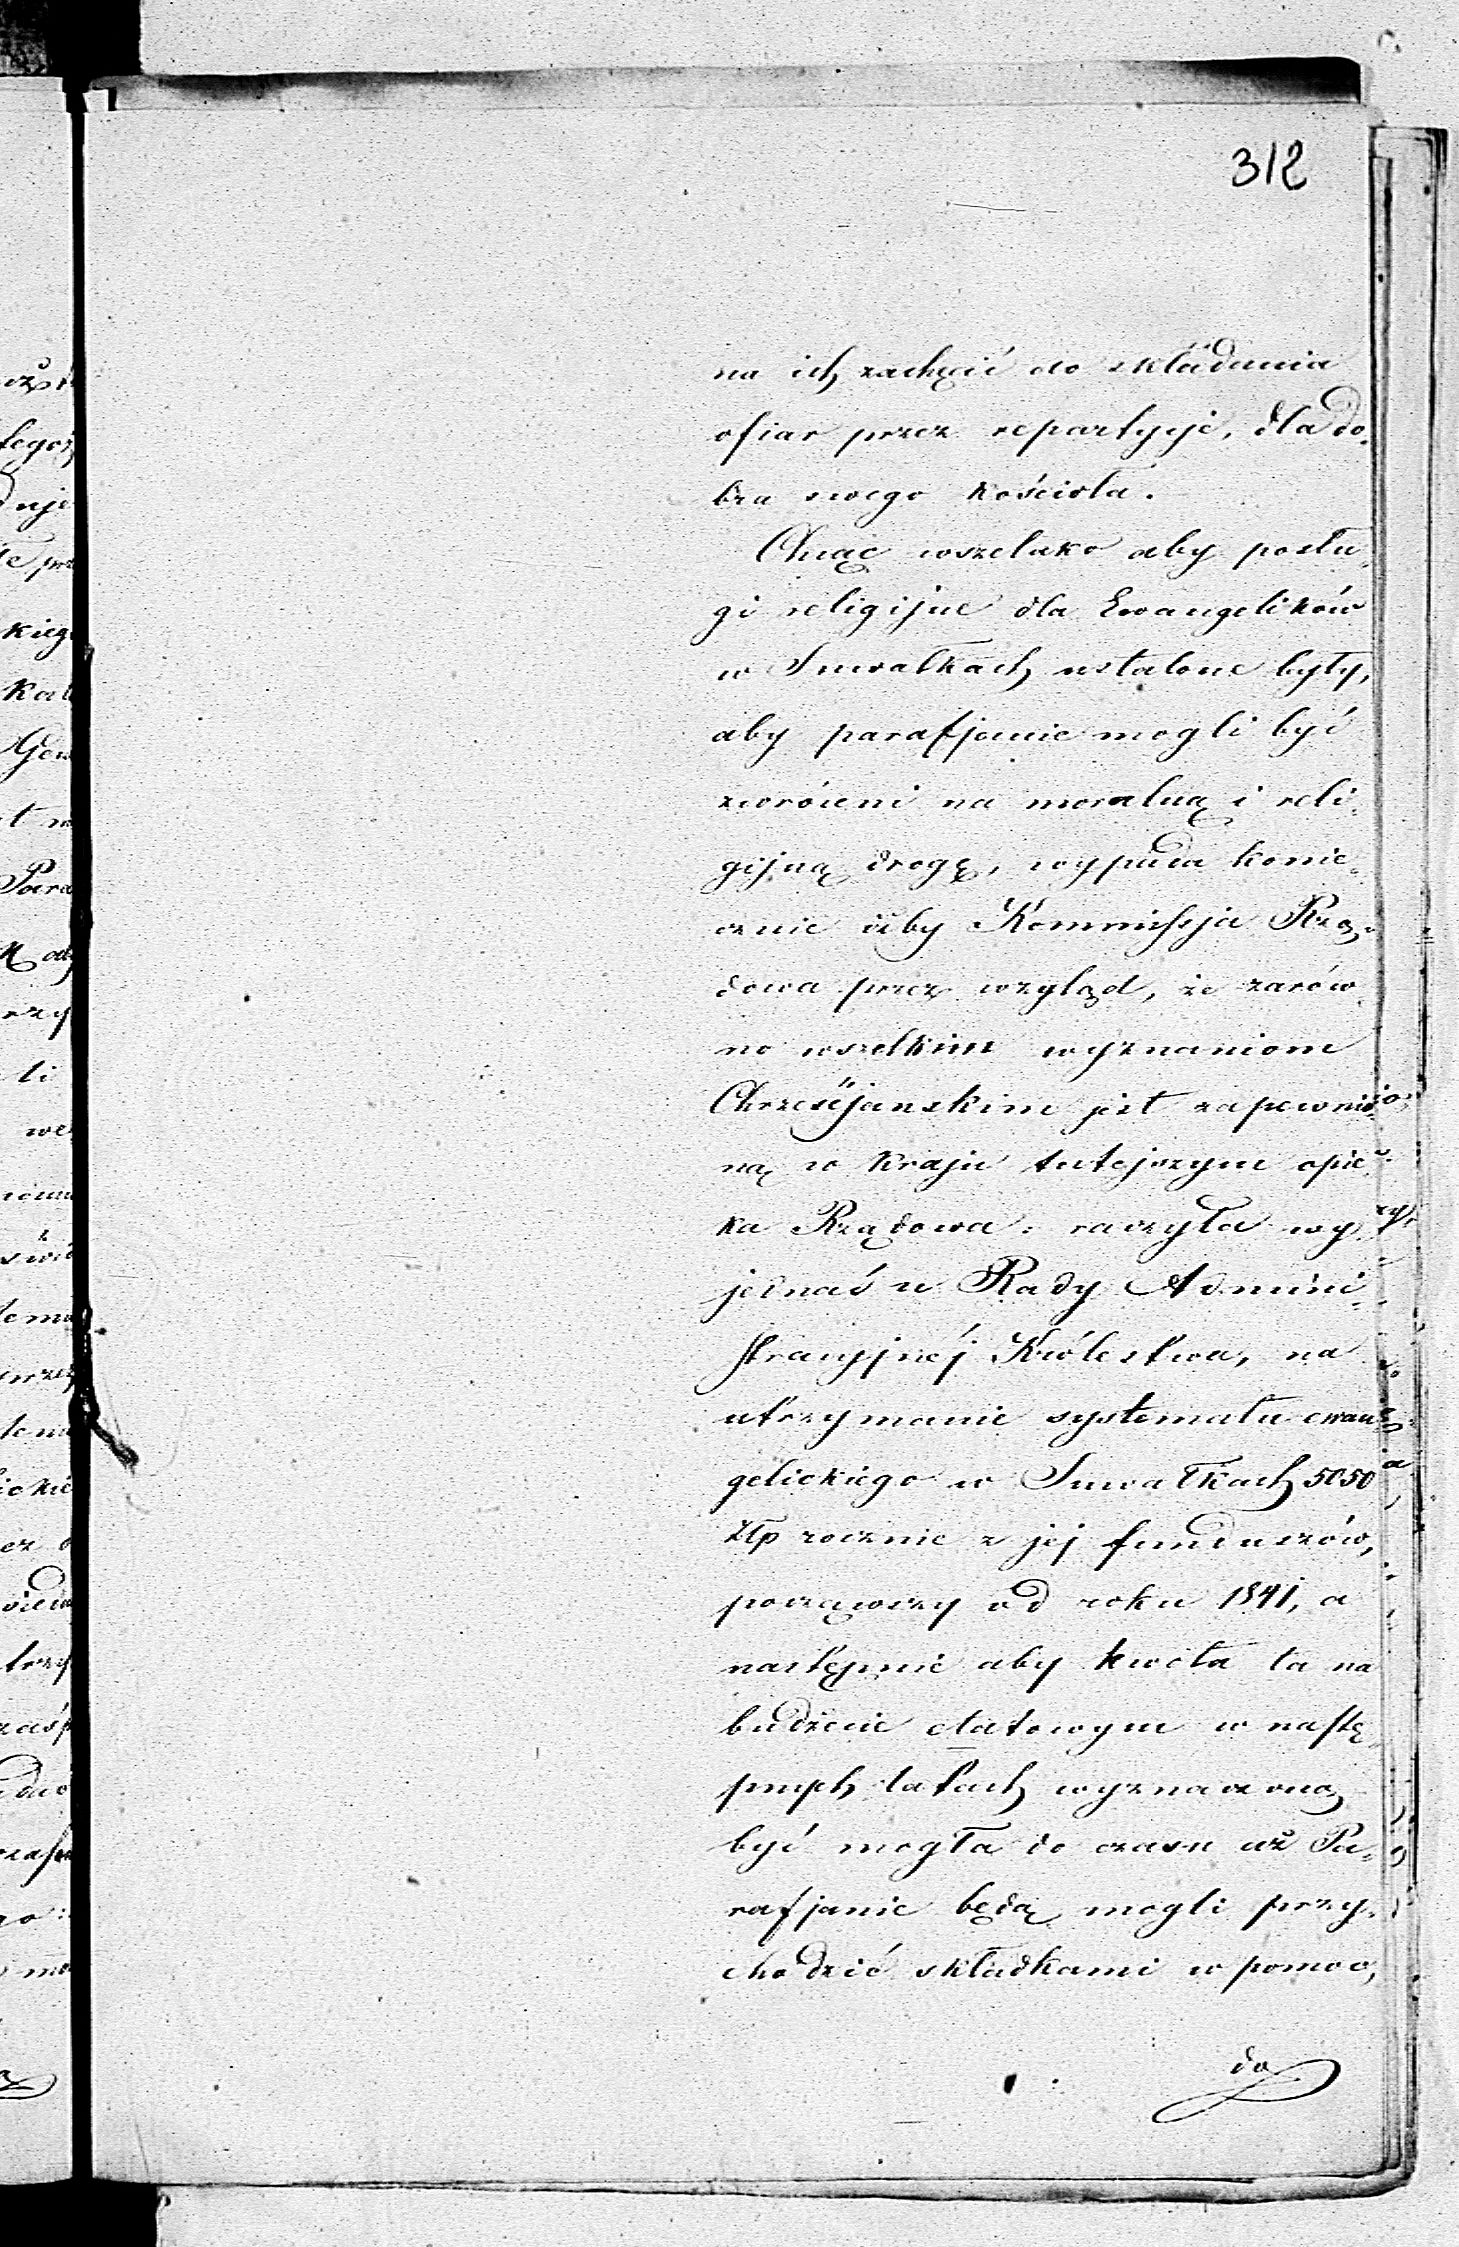 312
na ich zachęcić do składania
ofiar przez repartycje, dla do¬
bra swego kościoła.
Chcąc wszelako aby posłu¬
gi religijne dla Ewangelików
w Suwałkach ustalone były,
aby parafjanie mogli być
zwróceni na moralną i reli¬
gijną drogę, wypada konie¬
cznie iżby Kommissja Rzą¬
dowa przez wzgląd, że zarów¬
no wszelkim wyznaniom
Chrześcijanskim jest zapewnio¬
ną w kraju tutejszym opie¬
ka Rządowa: raczyła wy¬
jednać u Rady Admini¬
stracyjnéj Królestwa, na
utrzymanie systematu ewan¬
gelickiego w Suwałkach 5050
Złp rocznie z jej funduszów,
począwszy od roku 1841, a
następnie aby kwota ta na
budżecie etatowym w nastę¬
pnych latach wyznaczoną
być mogła do czasu aż Pa¬
rafjanie będą mogli przy¬
chodzić składkami w pomoc,
do